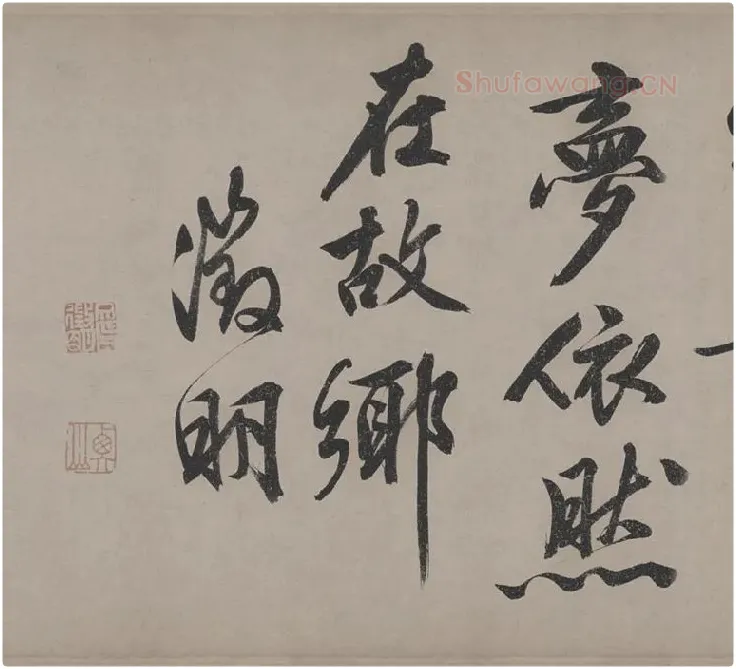 夢依然
在故鄉
徵明
Shufawang.CN